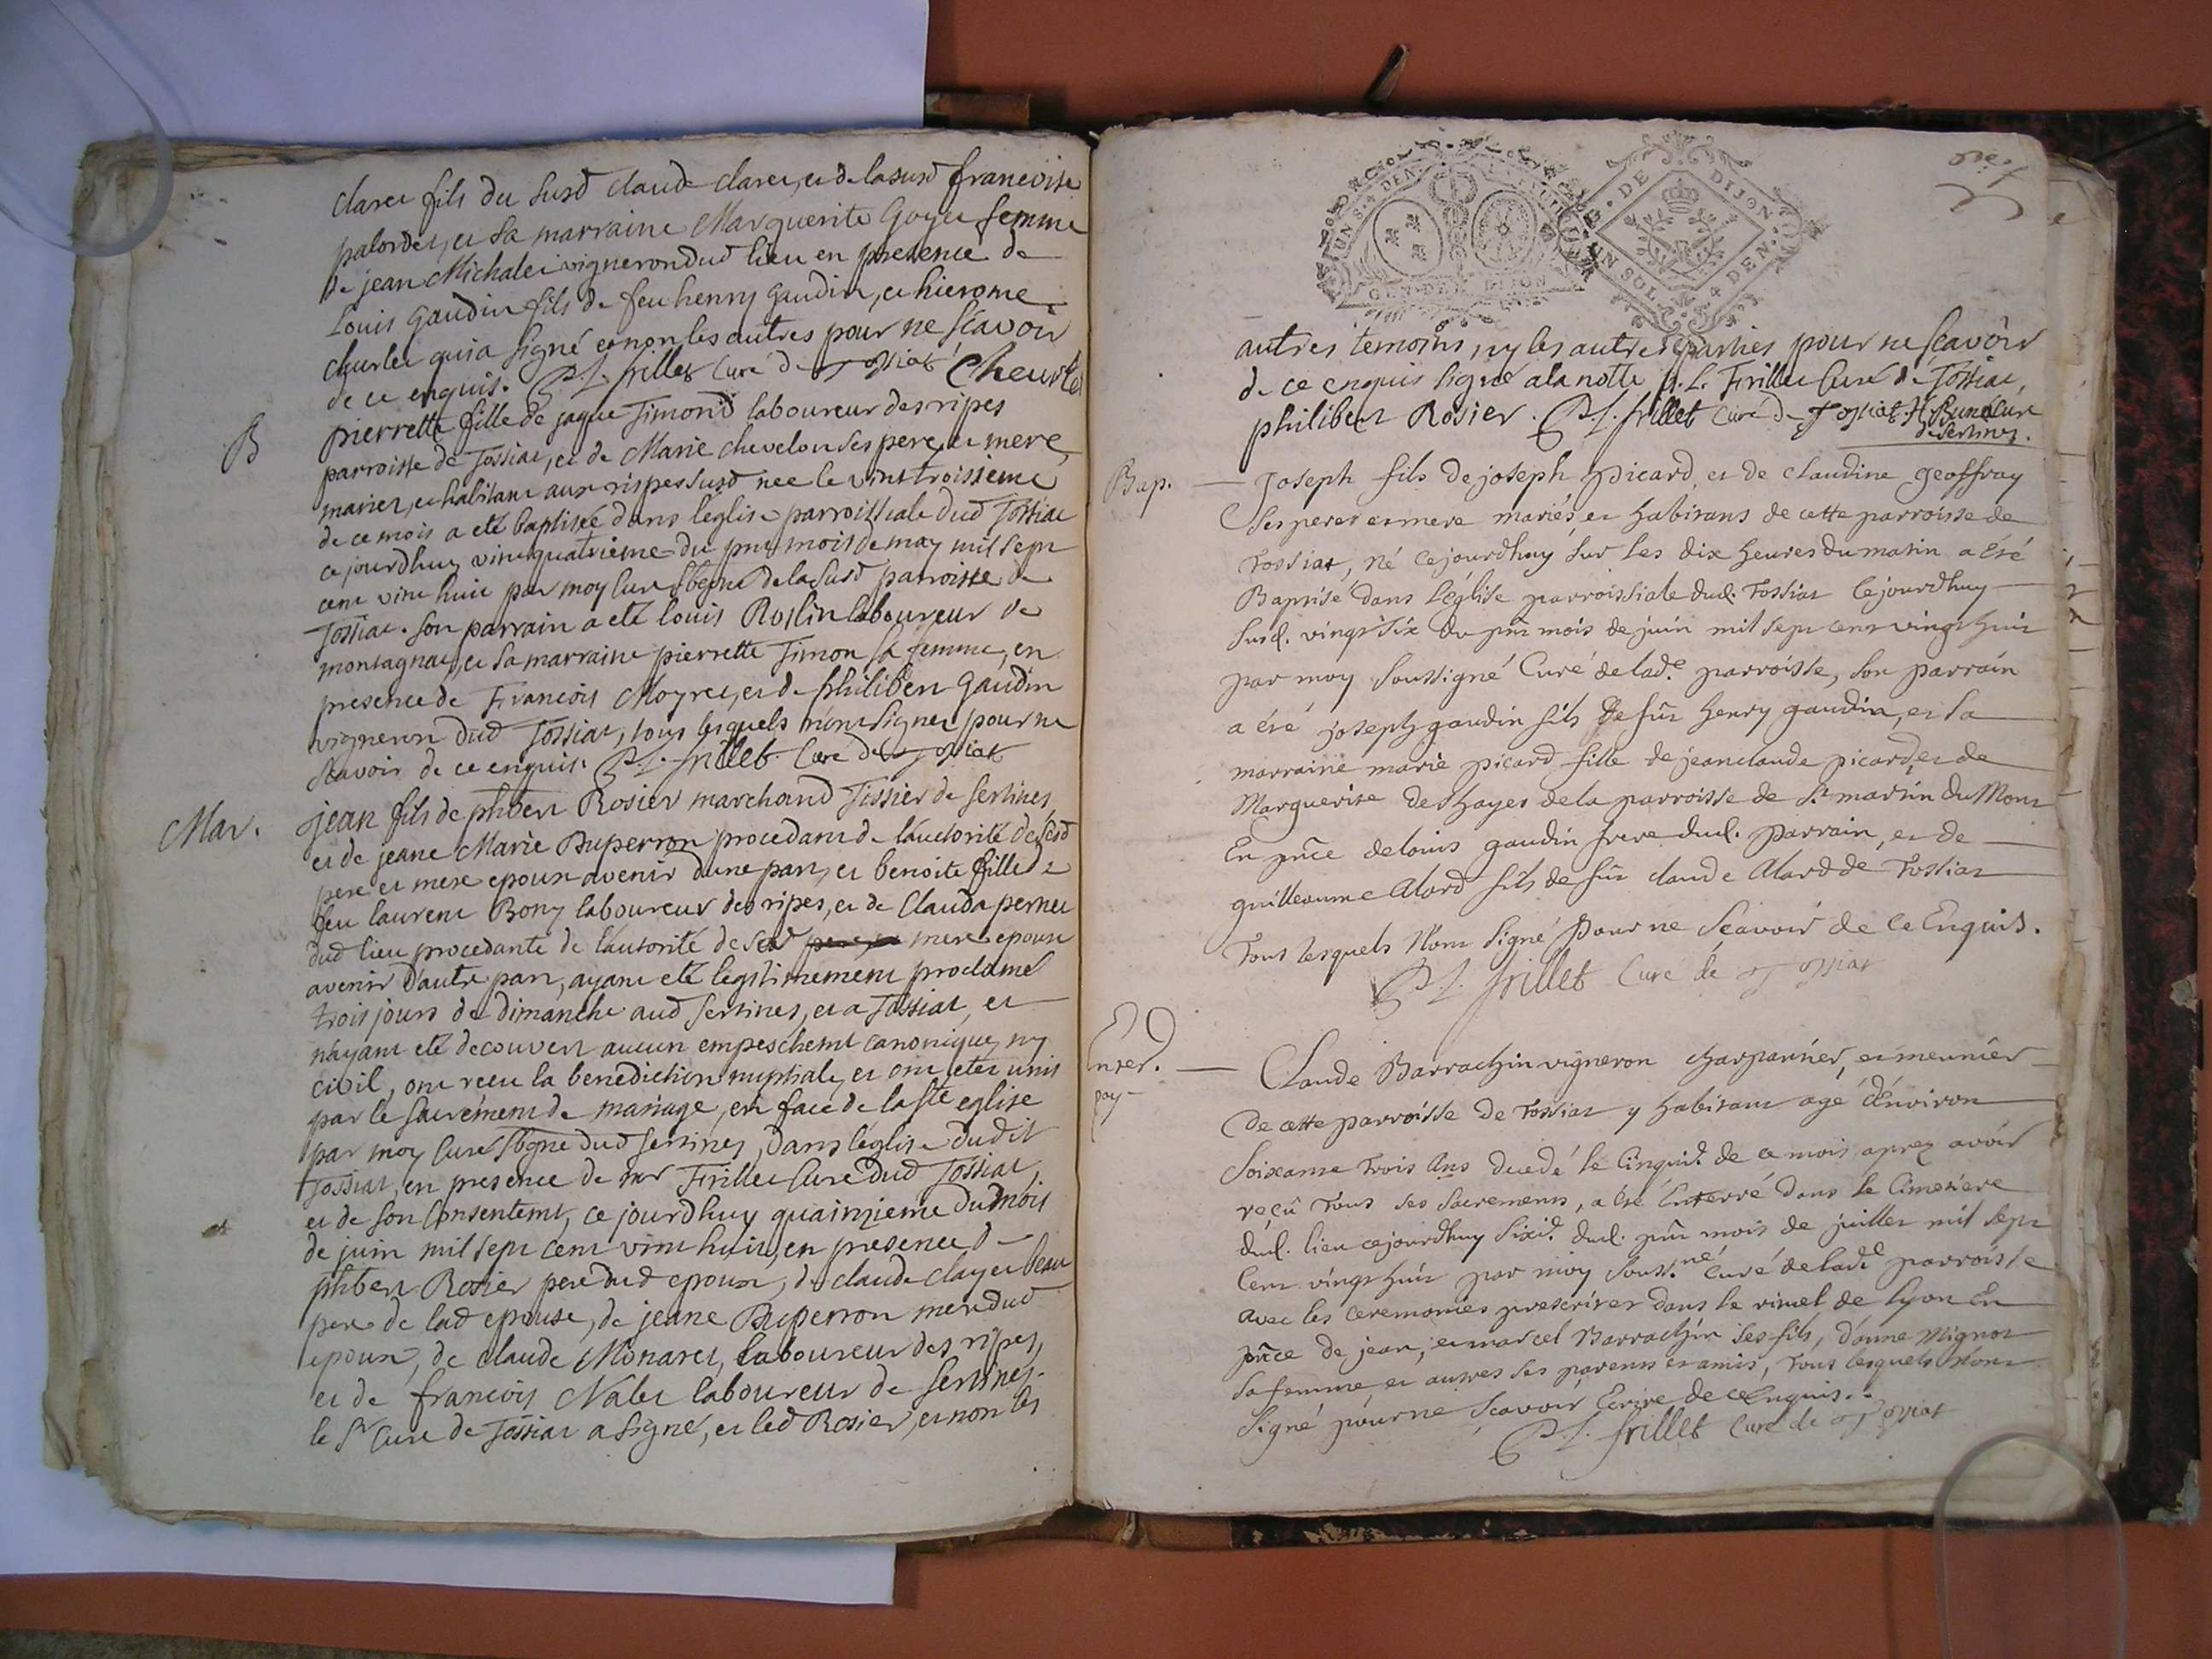 Claret fils du susd Claude Claret, et de la susd francoise
palordet, et sa marraine Marguerite Goyet femme
de jean Michalet vigneron dud lieu en presence de
Louis Gaudin fils de feu henry Gaudin, et hierome
Cheurlet qui a signé et non les autres pour ne scavoir
de ce enquis. P.L. frillet Curé de Tossiat Cheurlet
B
pierrette fille de jaque Timond laboureur des ripes
parroisse de Tossiat, et de Marie chevelon ses pere et mere
mariez, et habitans aux rispes susd nee le vint troisieme
de ce mois a eté baptisée dans leglise parroissiale dud Tossiat
ce jourdhuy vint quatrieme du pnt mois de may mil sept
cent vint huit par moy Curé sbsigne de la susd parroisse de
Tossiat. son parrain a eté louis Roslin laboureur de
montagnat, et sa marraine pierrette Timon sa femme, en
presence de Francois Moyret, et de philibert Gaudin
vigneron dud Tossiat, tous lesquels n'ont signer pour ne
scavoir de ce enquis. P.L. frillet Curé de Tossiat
Mar.
jean fils de phbert Rosier marchand Tissier de sertines
et de jeane Marie Buperron procedant de lauctorité de sesd
pere et mere epoux avenir dune part, et benoite fille de
feu laurent Bony laboureur des ripes, et de Clauda pernet
dud lieu procedante de lautorité de sad mere epouse
avenir dautre part, ayant eté legitimement proclamé
trois jours de dimanche aud sertines, et a Tossiat, et
nayant eté decouvert aucun empeschemt canonique, ny
civil, ont receu la benediction nuptiale, et ont etez unis
par le sacrement de mariage, en face de la ste eglise
par moy Curé sbsigne dud sertines, dans l'eglise dudit
Tossiat, en presence de mr Frillet Curé dud Tossiat,
et de son consentemt, ce jourdhuy quainzieme du mois
de juin mil sept cent vint huit, en presence de
phbert Rosier pere dud epoux, de claude clayet beau
pere de lad epouse, de jeane Buperron mere dud
epoux, de claude Monaret, laboureur des ripes,
et de francois Nalet laboureur de sertines.
le Sr Curé de Tossiat a signé, et led Rosier, et non les
UN S. 4 DEN.
GEN. DE DIJON
G. DE DIJON
UN SOL. 4 DEN.
autres temoins, ny les autres parties pour ne scavoir
de ce enquis signé a la notte P.L. Frillet Curé de Tossiat,
philibert Rosier. P.L. frillet Curé de Tossiat. Curé
de sertines.
Bap.
Joseph fils de joseph Picard, et de Claudine Geoffray
ses peres et mere mariés et habitans de cette parroisse de
Tossiat, né cejourdhuy sur les dix heures du matin a été
Baptisé dans l'église parroissiale dud. Tossiat Cejourdhuy
susd. vingt six du pnt mois de juin mil sept cent vingt huit
par moy soussigné Curé de lad.e parroisse, son parrain
a été joseph gaudin fils de fût henry gaudin, et sa
marraine marie picard fille de jean claude picard, et de
Marguerite deshayes de la parroisse de St martin du Mont
En pnce de louis gaudin frere dud. parrain, et de
guilleaume Alard fils de fût claude Alard de Tossiat
Tous lesquels n'ont signé Pour ne Scavoir de ce Enquis.
P.L. frillet Curé de Tossiat
Enter.
pay-
Claude Barrachin vigneron charpantier, et meunier
de cette parroisse de Tossiat y habitant agé d'Environ
soixante Trois Ans decedé le Cinquie. de ce mois aprez avoir
reçû Tous ses sacrements, a été Enterré dans le Cimetiere
dud. lieu cejourdhuy sixie. dud. pnt mois de juillet mil sept
Cent vingt huit par moy souss.né Curé de lade parroisse
avec les ceremonies prescrites dans le rituel de Lyon En
pnce de jean, et marcel Barrachin ses fils, d'anne Mignot
sa femme, et autres ses parents et amis, Tous lesquels n'ont
signé pour ne scavoir Ecrire de ce Enquis.
P.L. frillet Curé de Tossiat